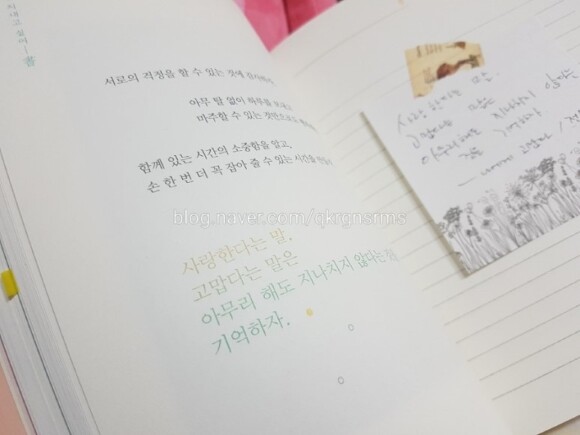 서로의 걱정을 할 수 있는 것에 감사하며
아무 탈 없이 하루를 보내고
마주할 수 있는 것만으로도
함께 있는 시간의 소중함을 알고,
손 한 번 더 꼭 잡아 줄 수 있는 시간을
사랑한다는 말.
고맙다는 말은
아무리 해도 지나치지 않다는 걸
기억하자.
사랑한다는 말.
고맙다는 말은
아무리 해도 지나치지 않다는
걸 기억하자
blog.naver.com/qkrgnsrms